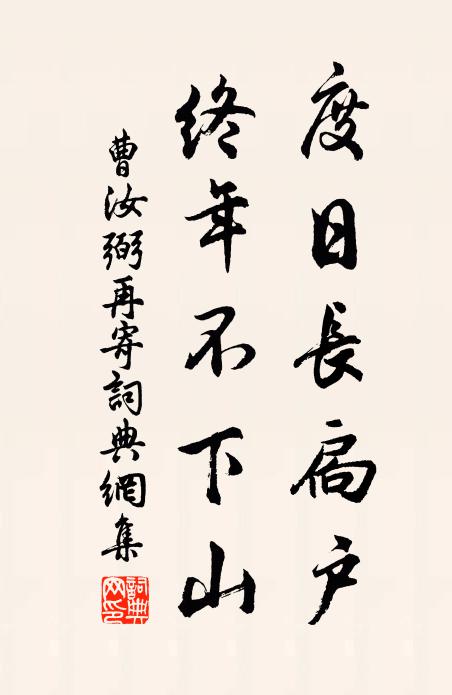 度日長扃户
終年不下山
曹汝弼再寄詞典網集
詞典网印